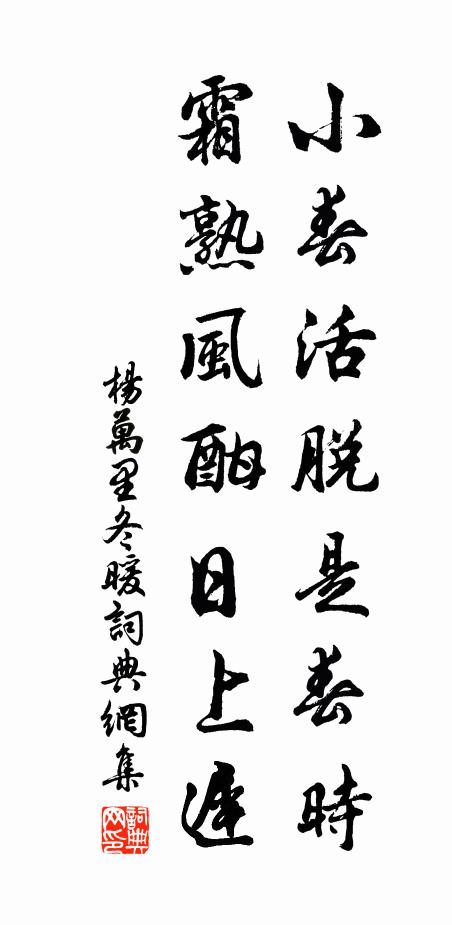 小春活脫是春時
霜熟風酣日上遲
楊萬里冬暖詞典網集
詞典網印